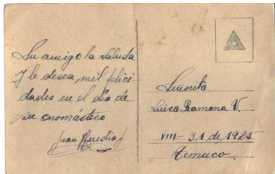 Su amigo la saluda
y le desea, mil felici
dades en el día de
su onomástico
Juan Heredia
Señorita
Luisa Ramona V.
VIII - 31 de 1925
Temuco.